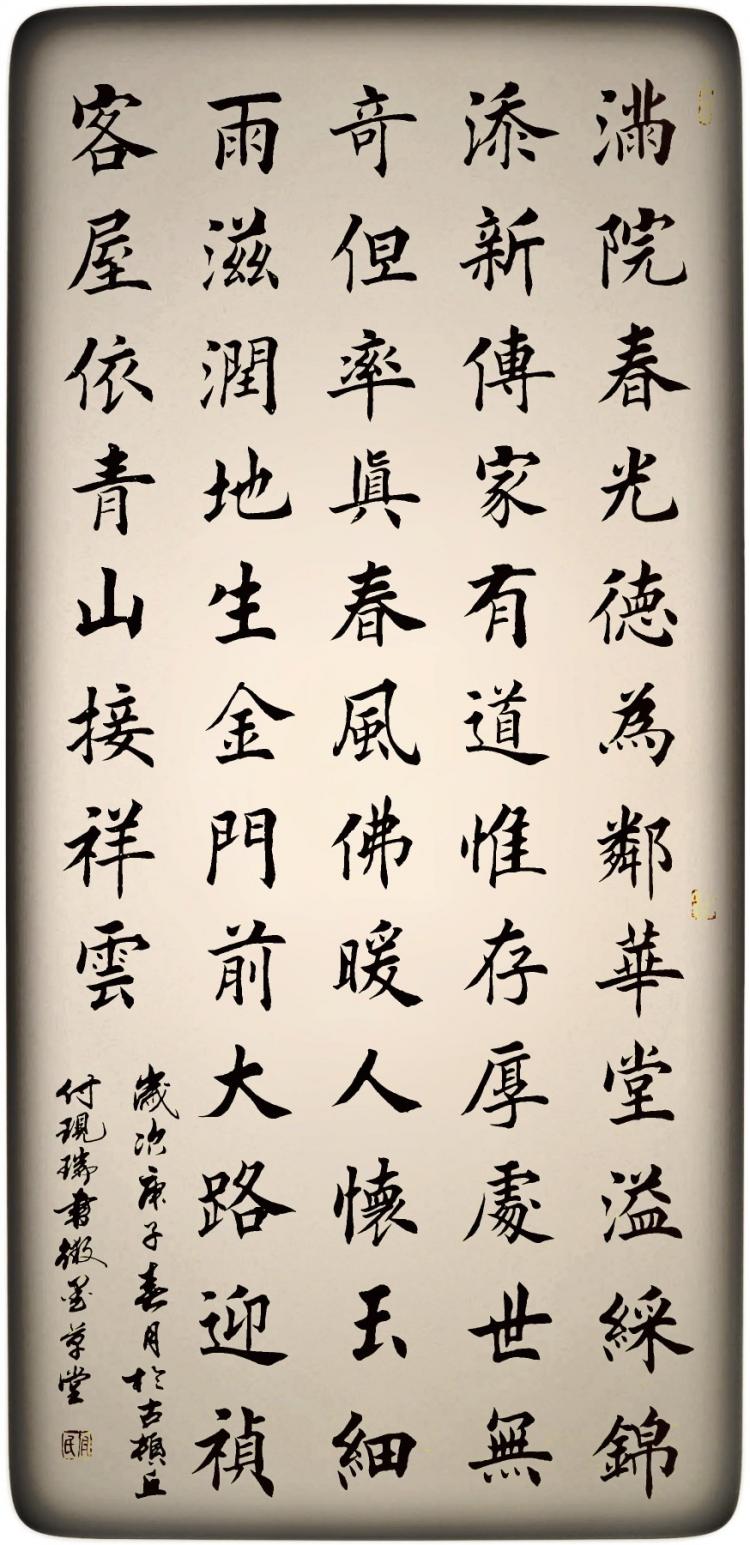 滿院春光德為鄰華堂溢綵錦
添新傳家有道惟存厚處世無
奇但率眞春風佛暖人懷玉細
雨滋潤地生金門前大路迎禎
客屋依青山接祥雲
歲次庚子春月於古頓丘
付現瑞書微墨草堂